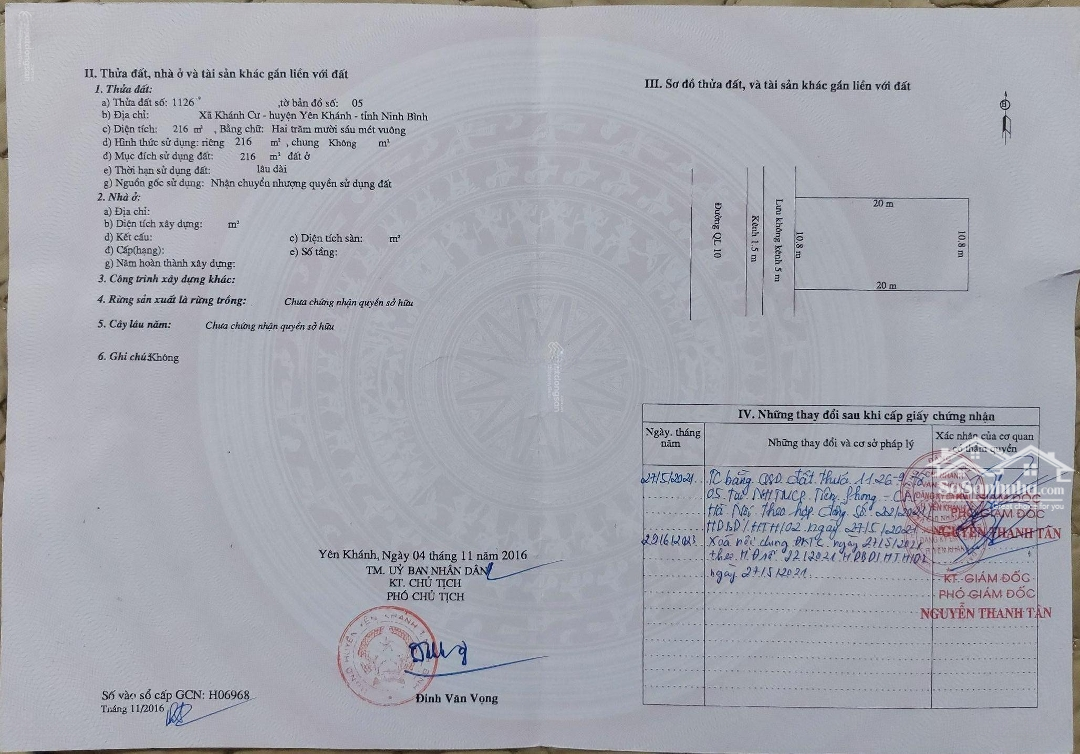 II. Thửa đất, nhà ở và tài sản khác gắn liền với đất
1. Thửa đất:
a) Thửa đất số: 1126 ,tờ bản đồ số: 05
b) Địa chỉ: Xã Khánh Cư - huyện Yên Khánh - tỉnh Ninh Bình
c) Diện tích: 216 m² , Bằng chữ: Hai trăm mười sáu mét vuông
d) Hình thức sử dụng: riêng 216 m² , chung Không m²
đ) Mục đích sử dụng đất: 216 m² đất ở
e) Thời hạn sử dụng đất: lâu dài
g) Nguồn gốc sử dụng: Nhận chuyển nhượng quyền sử dụng đất
2. Nhà ở:
a) Địa chỉ:
b) Diện tích xây dựng: m²
d) Kết cấu: c) Diện tích sàn: m²
đ) Cấp(hạng): e) Số tầng:
g) Năm hoàn thành xây dựng:
3. Công trình xây dựng khác:
4. Rừng sản xuất là rừng trồng: Chưa chứng nhận quyền sở hữu
5. Cây lâu năm: Chưa chứng nhận quyền sở hữu
6. Ghi chú:Không
Yên Khánh, Ngày 04 tháng 11 năm 2016
TM. UỶ BAN NHÂN DÂN
KT. CHỦ TỊCH
PHÓ CHỦ TỊCH
Đinh Văn Vọng
Số vào sổ cấp GCN: H06968
Tháng 11/2016
III. Sơ đồ thửa đất, và tài sản khác gắn liền với đất
Đường QL 10
Kênh 1.5 m
Lưu không kênh 5 m
10.8 m
20 m
10.8 m
20 m
IV. Những thay đổi sau khi cấp giấy chứng nhận
Ngày. tháng
năm
Những thay đổi và cơ sở pháp lý
Xác nhận của cơ quan
có thẩm quyền
27/5/2021 TC bằng QSD đất thuộc 1126-
05. Tại NHTMCP Tiên Phong -
Hà Nội theo hợp đồng số 22/2021/
HDBD/HTH/02 ngày 27/5/2021
29/6/2023 Xoá nội dung ĐKTC ngày 27/5/2021
theo HĐ số 22/2021/HDBD/HTH/02
ngày 27/5/2021.
SoSanhnha.com
PHÓ GIÁM ĐỐC
NGUYỄN THANH TÂN
KT. GIÁM ĐỐC
PHÓ GIÁM ĐỐC
NGUYỄN THANH TÂN